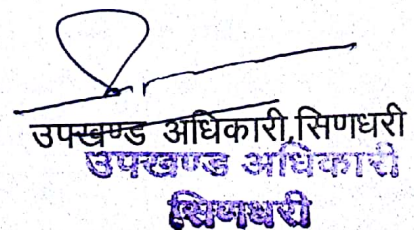 उपखण्ड अधिकारी,सिणधरी
उपखण्ड अधिकारी
सिणधरी